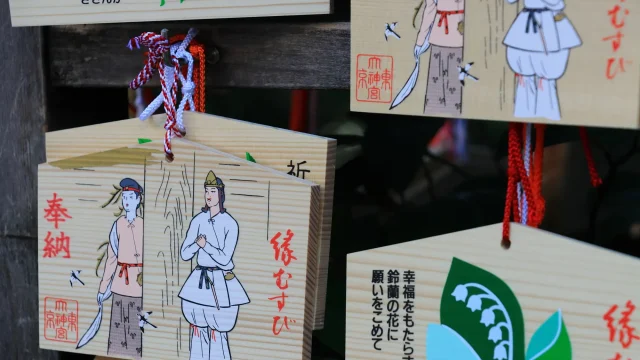 東京
大神宮
縁むすび
祈
奉納
縁むすび
東京
大神宮
幸福をもたらす
鈴蘭の花に
願いをこめて
縁